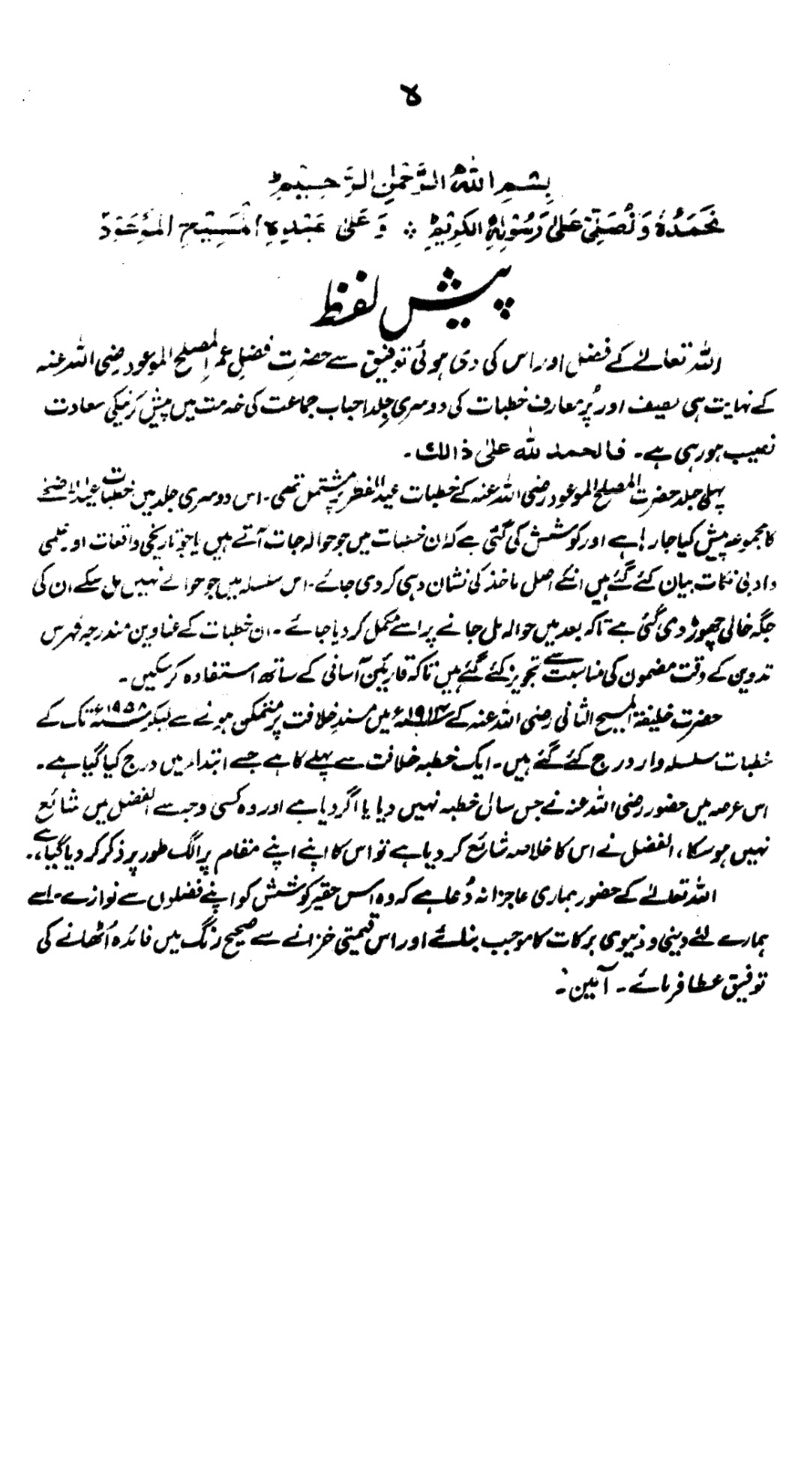 لا
بِسْمِ اللهِ الرَّحْمٰنِ الرَّحِيْمِ
نَحْمَدُهٗ وَنُصَلِّیْ عَلٰی رَسُوْلِهِ الْکَرِیْمِ ؞ وَعَلٰی عَبْدِهِ الْمَسِیْحِ الْمَوْعُوْدِ
پیش لفظ
اللہ تعالےٰ کے فضل اور اس کی دی ہوئی توفیق سے حضرت فضلِ عمر المصلح الموعود رضی اللہ عنہ
کے نہایت ہی لطیف اور پُر معارف خطبات کی دوسری جلد احباب جماعت کی خدمت میں پیش کرنیکی سعادت
نصیب ہو رہی ہے۔ فالحمد للہ علیٰ ذالك۔
پہلی جلد حضرت المصلح الموعود رضی اللہ عنہ کے خطبات عید الفطر پر مشتمل تھی۔ اس دوسری جلد میں خطبات عید الاضحےٰ
کا مجموعہ پیش کیا جا رہا ہے اور کوشش کی گئی ہے کہ ان خطبات میں جو حوالہ جات آتے ہیں یا جو تاریخی واقعات اور علمی
و ادبی نکات بیان کئے گئے ہیں انکے اصل ماخذ کی نشان دہی کر دی جائے۔ اس سلسلہ میں جو حوالے نہیں مل سکے، ان کی
جگہ خالی چھوڑ دی گئی ہے تاکہ بعد میں حوالہ مل جانے پر اسے مکمل کر دیا جائے۔ ان خطبات کے عناوین مندرجہ فہرس
تدوین کے وقت مضمون کی مناسبت سے تجویز کئے گئے ہیں تاکہ قارئین آسانی کے ساتھ استفادہ کر سکیں۔
حضرت خلیفۃ المسیح الثانی رضی اللہ عنہ کے ۱۹۱۴ء میں مسندِ خلافت پر متمکن ہونے سے لیکر ۱۹۵۸ء تک کے
خطبات سلسلہ وار درج کئے گئے ہیں۔ ایک خطبہ خلافت سے پہلے کا ہے جسے ابتداء میں درج کیا گیا ہے۔
اس عرصہ میں حضور رضی اللہ عنہ نے جس سال خطبہ نہیں دیا یا اگر دیا ہے اور وہ کسی وجہ سے الفضل میں شائع
نہیں ہو سکا، الفضل نے اس کا خلاصہ شائع کر دیا ہے تو اس کا اپنے اپنے مقام پر الگ طور پر ذکر کر دیا گیا ہے۔
اللہ تعالےٰ کے حضور ہماری عاجزانہ دُعا ہے کہ وہ اس حقیر کوشش کو اپنے فضلوں سے نوازے۔ اسے
ہمارے لئے دینی و دنیوی برکات کا موجب بنائے اور اس قیمتی خزانے سے صحیح رنگ میں فائدہ اُٹھانے کی
توفیق عطا فرمائے۔ آمین۔